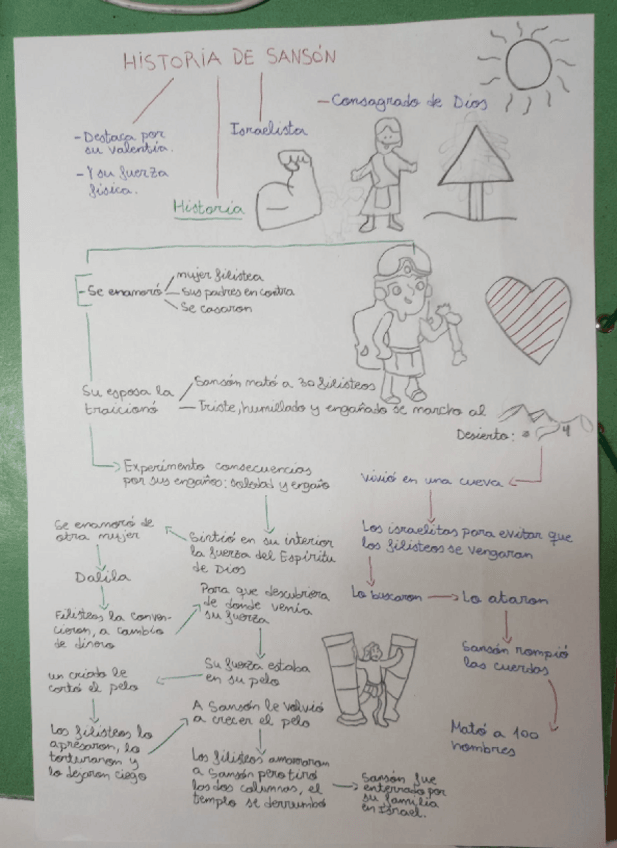 HISTORIA DE SANSÓN
- Consagrado de Dios
- Destaca por
su valentía.
- Y su fuerza
física.
Israelista
Historia
- Se enamoró
mujer filistea
Sus padres en contra
Se casaron
Su esposa la
traicionó
Sansón mató a 30 filisteos
Triste, humillado y engañado se marcho al
Desierto:
vivió en una cueva
Los israelitas para evitar que
los filisteos se vengaran
Lo buscaron
Lo ataron
Sansón rompió
las cuerdas
Mató a 100
hombres
Experimento consecuencias
por sus engaños: soledad y engaño
Sintió en su interior
la fuerza del Espíritu
de Dios
Se enamoró de
otra mujer
Dalila
Filisteos la conven-
cieron, a cambio
de dinero
Para que descubriera
de donde venía
su fuerza
Su fuerza estaba
en su pelo
un criado le
cortó el pelo
Los filisteos lo
apresaron, lo
torturaron y
lo dejaron ciego
A Sansón le volvió
a crecer el pelo
Los filisteos amarraron
a Sansón pero tiró
las dos columnas, el
templo se derrumbó
Sansón fue
enterrado por
su familia
en Israel.